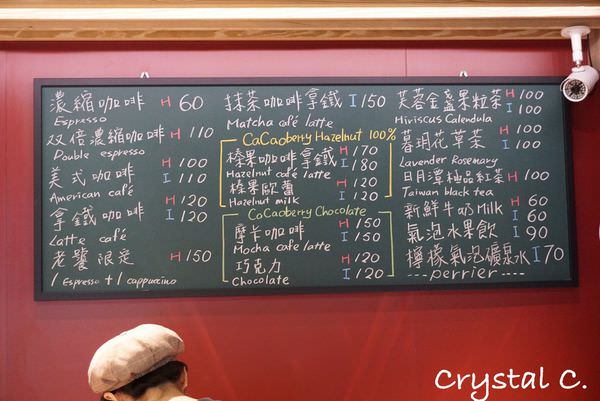 濃縮咖啡 H 60
Espresso
双倍濃縮咖啡 H 110
Double espresso
美式咖啡 H 100
I 110
American café
拿鐵咖啡 H 120
I 120
Latte café
老饕限定 H 150
1 Espresso + 1 cappuccino
抹茶咖啡拿鐵 I 150
Matcha café latte
CaCaoberry Hazelnut 100%
榛果咖啡拿鐵 H 170
I 180
Hazelnut café latte
榛果歐蕾 H 120
I 120
Hazelnut milk
CaCaoberry Chocolate
摩卡咖啡 H 150
I 150
Mocha café latte
巧克力 H 120
I 120
Chocolate
芙蓉金盞果粒茶 H 100
I 100
Hiviscus Calendula
暮玥花草茶 H 100
I 100
Lavender Rosemary
日月潭柚品紅茶 H 100
Taiwan black tea
新鮮牛奶Milk H 60
I 60
氣泡水果飲 I 90
檸檬氣泡礦泉水 I 70
---perrier---
Crystal C.